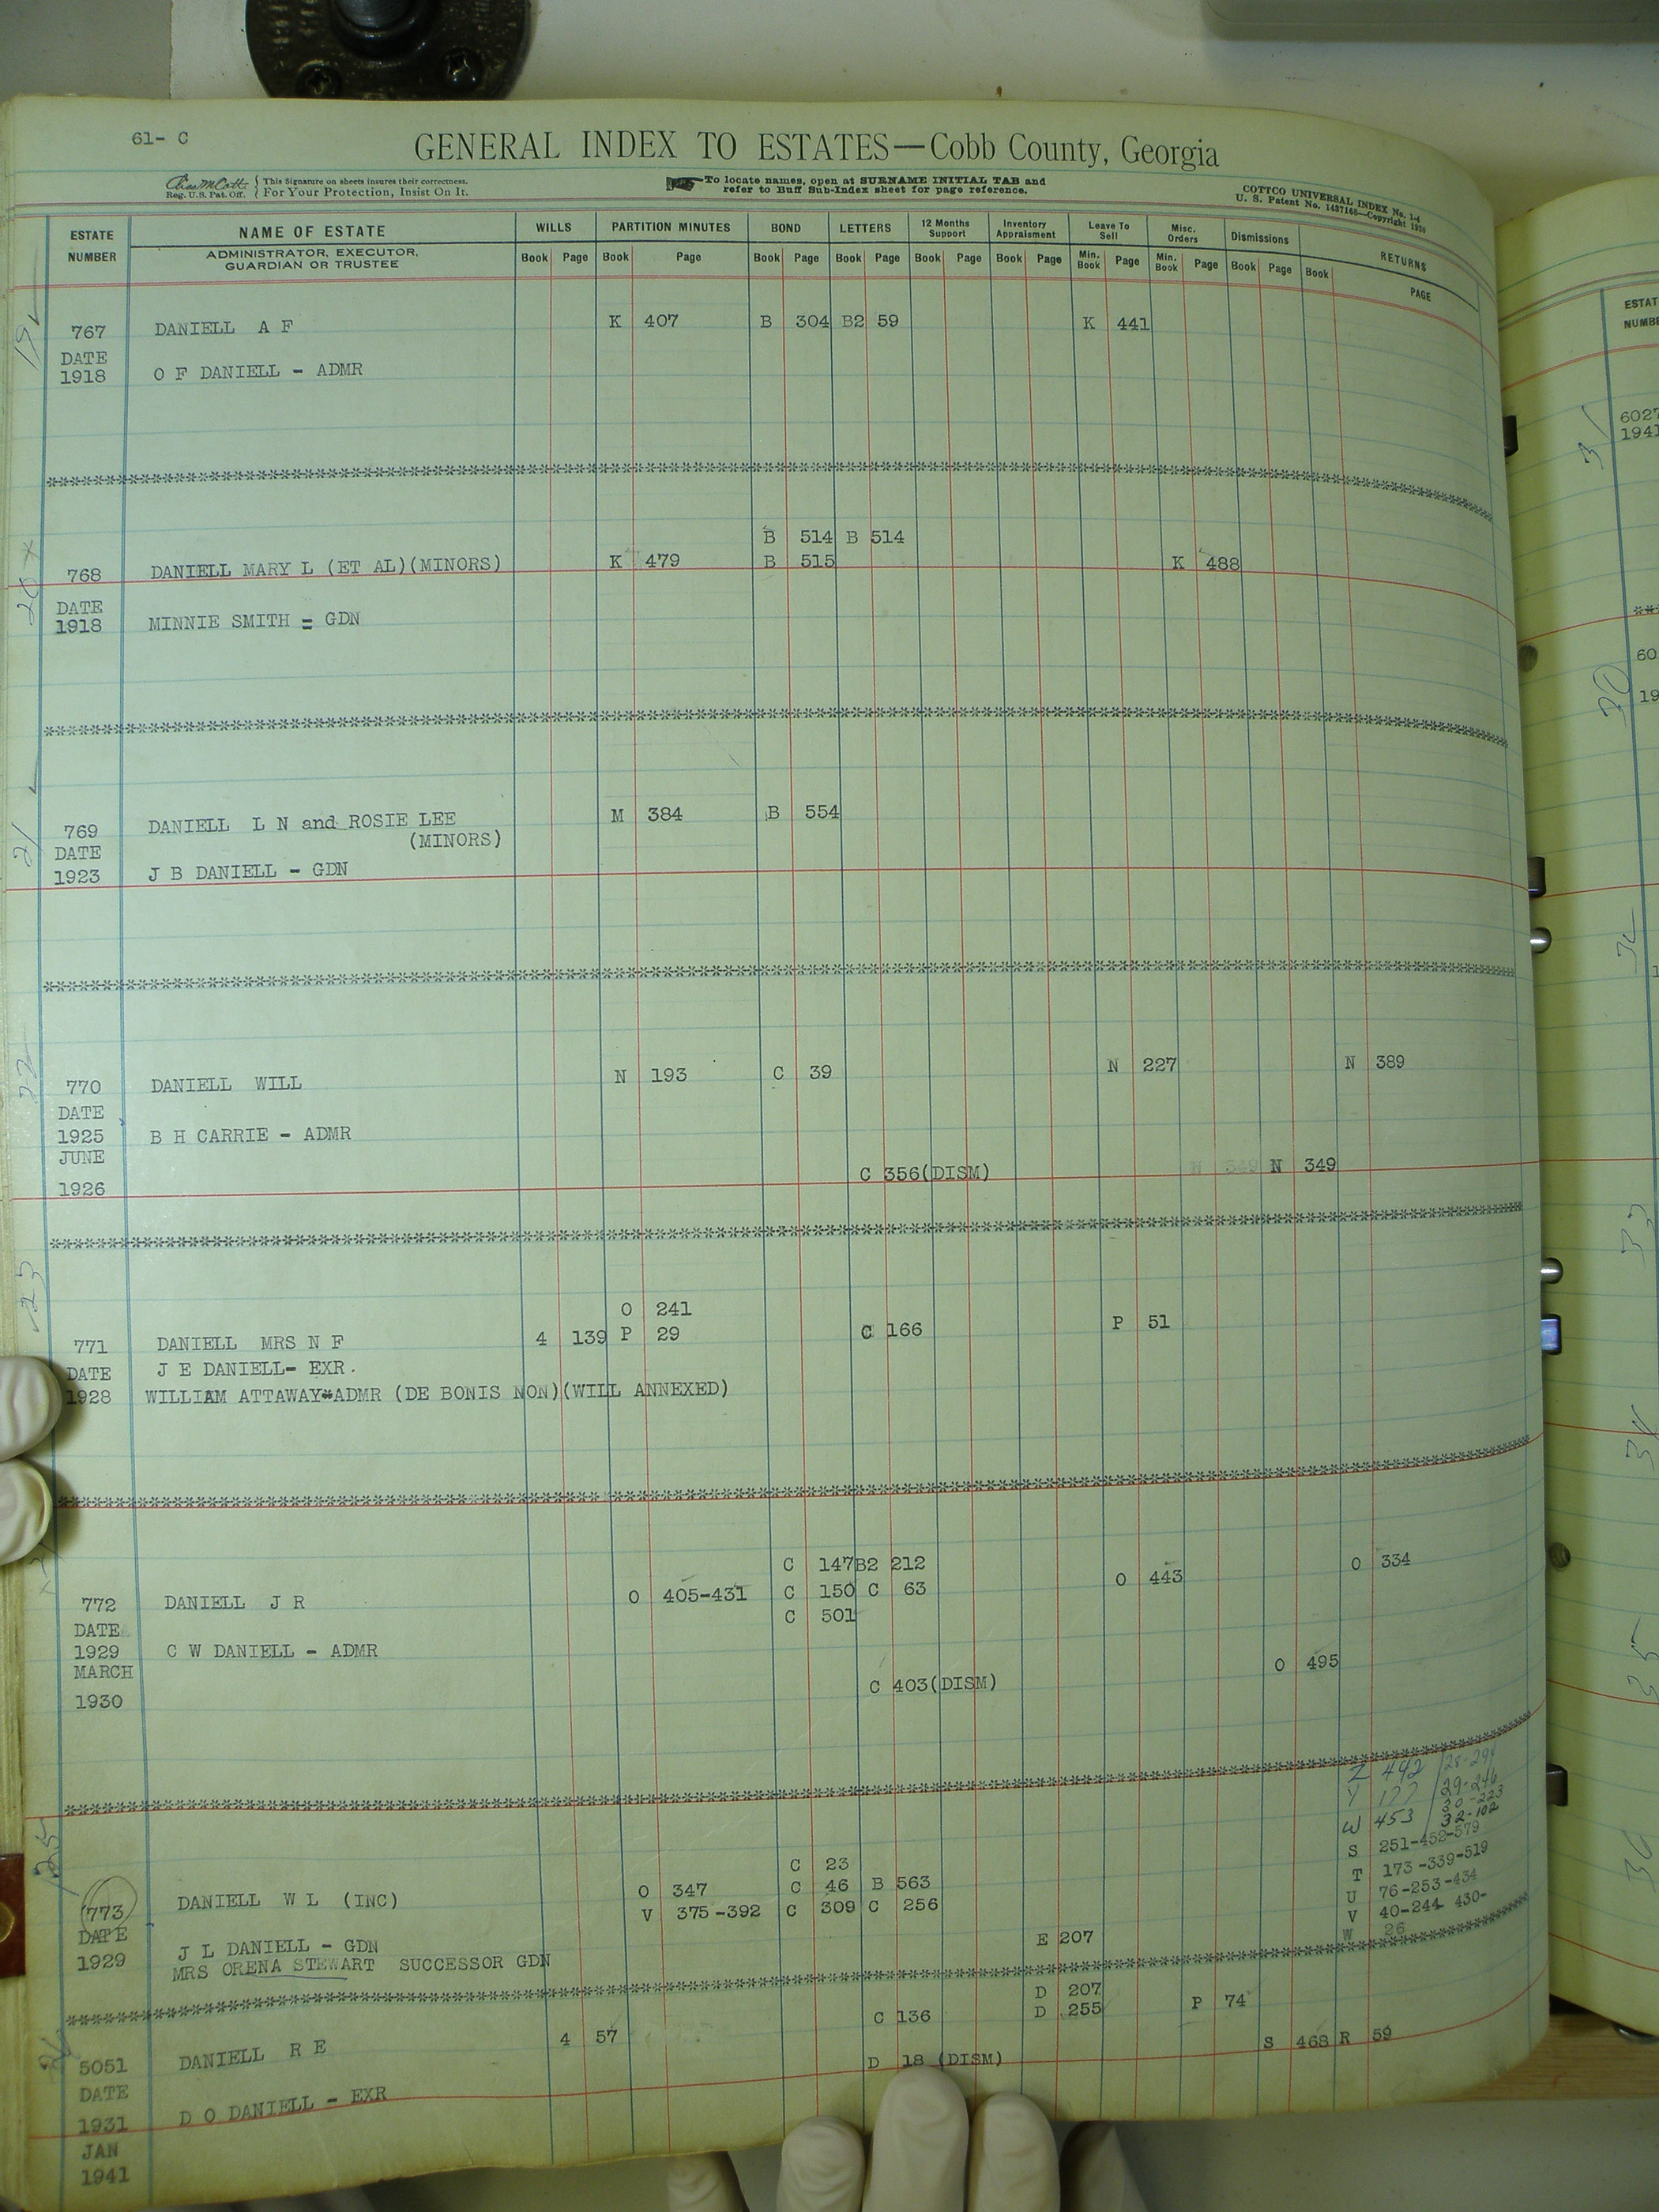 61- C
GENERAL INDEX TO ESTATES—Cobb County, Georgia
Reg. U.S. Pat. Off.
This Signature on sheets insures their correctness.
For Your Protection, Insist On It.
To locate names, open at SURNAME INITIAL TAB and
refer to Buff Sub-Index sheet for page reference.
COTTCO UNIVERSAL INDEX No. 1-4
U. S. Patent No. 1437168—Copyright
ESTATE NUMBER NAME OF ESTATE WILLS PARTITION MINUTES BOND LETTERS 12 Months Support Inventory Appraisment Leave To Sell Misc. Orders Dismissions RETURNS
ADMINISTRATOR, EXECUTOR, GUARDIAN OR TRUSTEE Book Page Book Page Book Page Book Page Book Page Book Page Min. Book Page Min. Book Page Book Page Book PAGE
19
767 DANIELL A F K 407 B 304 B2 59 K 441
DATE
1918 O F DANIELL - ADMR
B 514 B 514
20 768 DANIELL MARY L (ET AL)(MINORS) K 479 B 515 K 488
DATE
1918 MINNIE SMITH = GDN
21 769 DANIELL L N and ROSIE LEE M 384 B 554
(MINORS)
DATE
1923 J B DANIELL - GDN
22 770 DANIELL WILL N 193 C 39 N 227 N 389
DATE
1925 B H CARRIE - ADMR
JUNE
C 356(DISM) N 349 N 349
1926
23
O 241
771 DANIELL MRS N F 4 139 P 29 C 166 P 51
DATE J E DANIELL- EXR.
1928 WILLIAM ATTAWAY*ADMR (DE BONIS NON)(WILL ANNEXED)
C 147 B2 212 O 334
772 DANIELL J R O 405-431 C 150 C 63 O 443
C 501
DATE
1929 C W DANIELL - ADMR O 495
MARCH
C 403(DISM)
1930
Z 442 28-291
Y 177 29-246
30-223
W 453 32-102
S 251-452-579
25
C 23 T 173-339-519
773 DANIELL W L (INC) O 347 C 46 B 563 U 76-253-434
V 375-392 C 309 C 256 V 40-244 430-
DATE E 207 W 26
1929 J L DANIELL - GDN
MRS ORENA STEWART SUCCESSOR GDN
D 207
C 136 D 255 P 74
5051 DANIELL R E 4 57 S 468 R 59
D 18 (DISM)
DATE
1931 D O DANIELL - EXR
JAN
1941
ESTAT
NUMBE
6027
1941
30
60
19
33
34
35
36